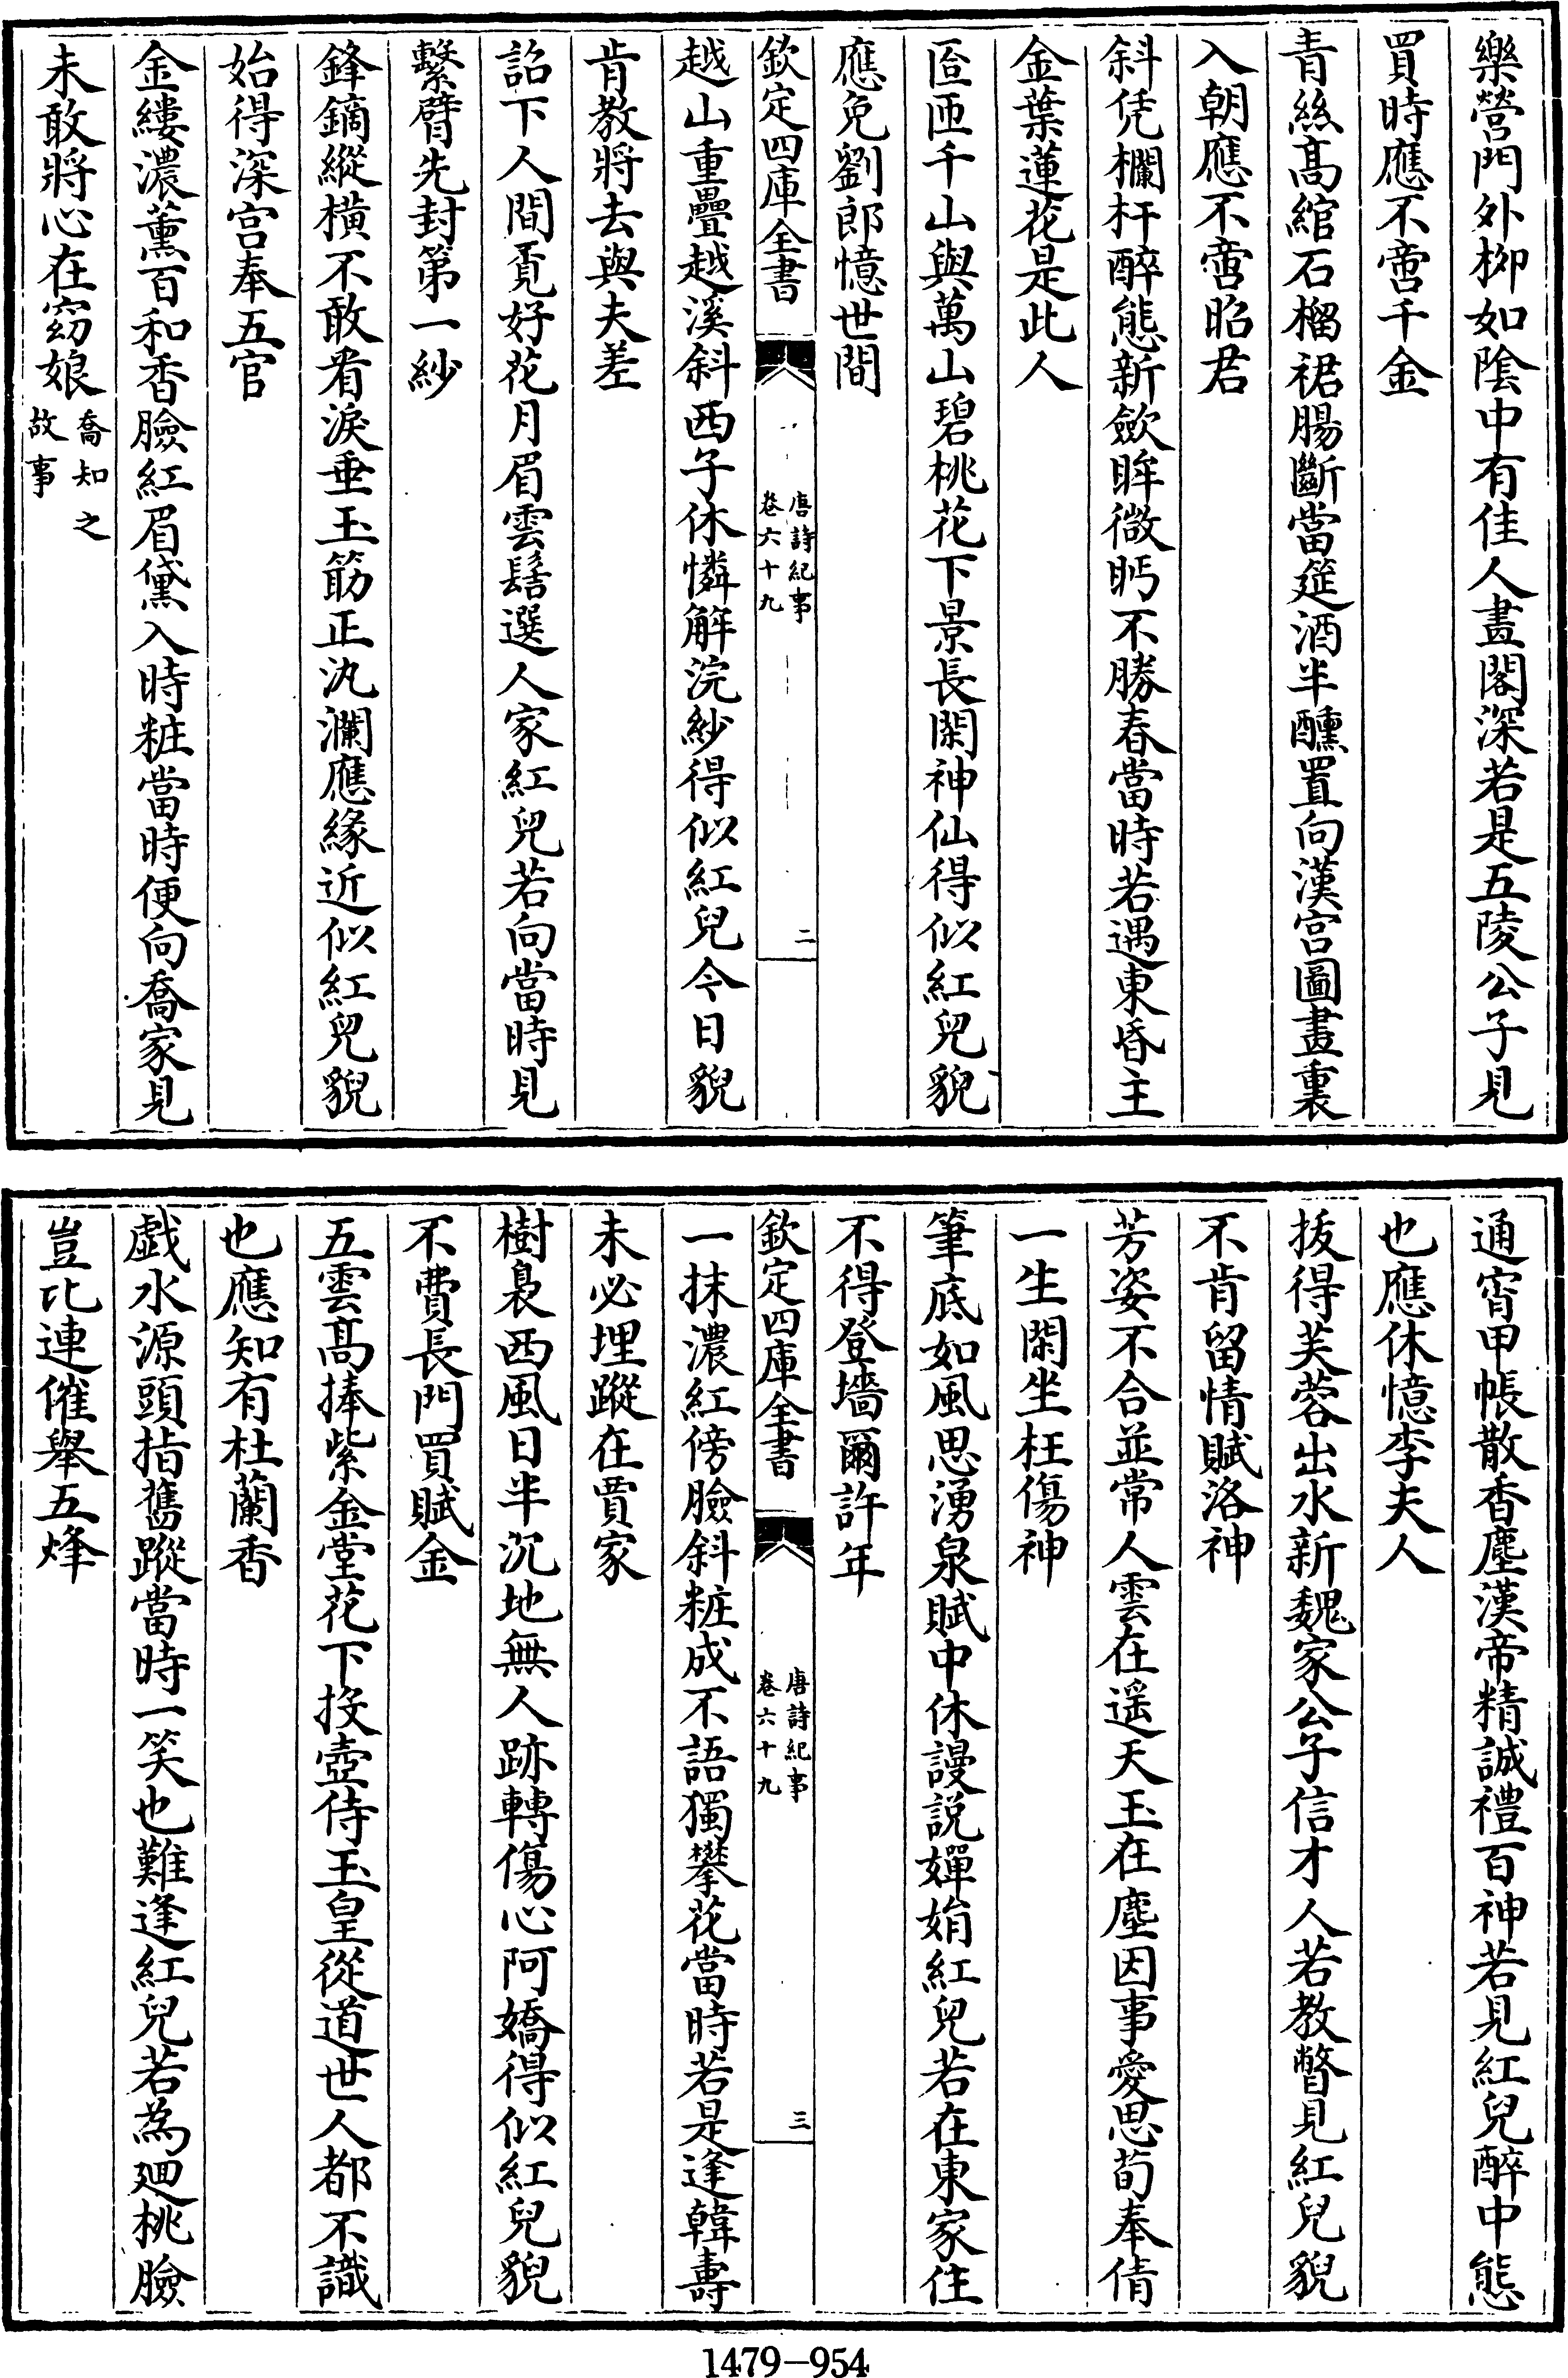 樂營門外柳如隂中有佳人畫閣深若是五陵公子見
買時應不啻千金
青絲髙綰石榴裙腸斷當筵酒半醺置向漢宫圖畫裏
入朝應不啻昭君
斜凭欄杆醉態新歛眸微眄不勝春當時若遇東昏主
金葉蓮花是此人
匼匝千山與萬山碧桃花下景長閑神仙得似紅兒貌
應免劉郎憶世間
欽定四庫全書
唐詩紀事
卷六十九
二
越山重疊越溪斜西子休憐解浣紗得似紅兒今日貌
肯教將去與夫差
詔下人間覓好花月眉雲髻選人家紅兒若向當時見
繫臂先封第一紗
鋒鏑縱橫不敢㸔淚垂玉筯正汍瀾應緣近似紅兒貌
始得深宫奉五官
金縷濃薰百和香臉紅眉黛入時粧當時便向喬家見
未敢將心在窈娘喬知之
故事
通宵甲帳散香塵漢帝精誠禮百神若見紅兒醉中態
也應休憶李夫人
拔得芙蓉出水新魏家公子信才人若教瞥見紅兒貌
不肯留情賦洛神
芳姿不合並常人雲在遥天玉在塵因事愛思荀奉倩
一生閑坐枉傷神
筆底如風思湧泉賦中休謾説嬋娟紅兒若在東家住
不得登墻爾許年
欽定四庫全書
唐詩紀事
卷六十九
三
一抹濃紅傍臉斜粧成不語獨攀花當時若是逢韓壽
未必埋蹤在賈家
樹裊西風日半沉地無人跡轉傷心阿嬌得似紅兒貌
不費長門買賦金
五雲髙捧紫金堂花下投壺侍玉皇從道世人都不識
也應知有杜蘭香
戯水源頭指舊蹤當時一笑也難逢紅兒若為廻桃臉
豈比連催舉五烽
1479-954